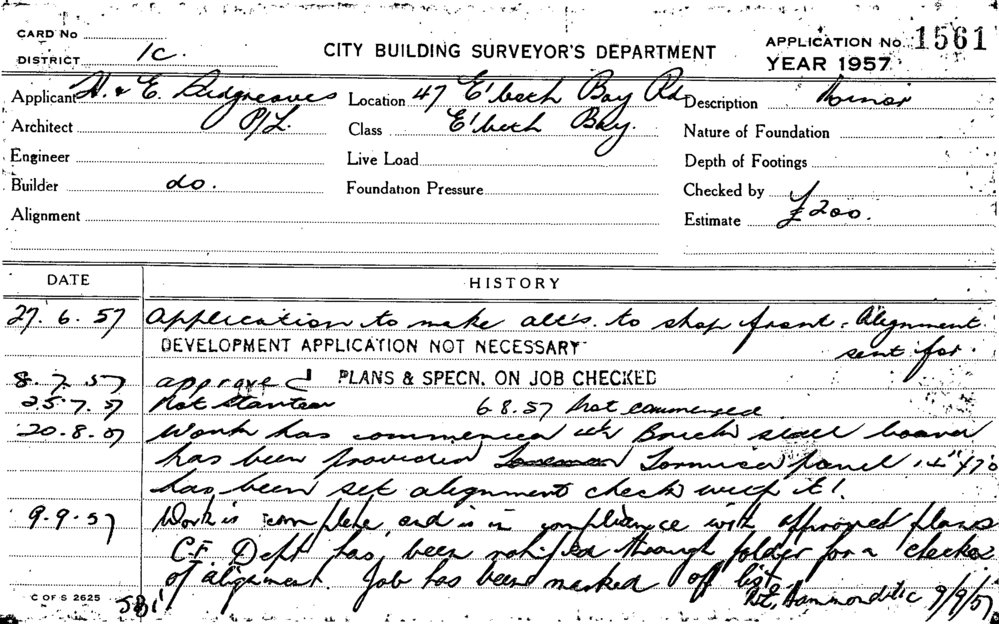 CARD No
DISTRICT 1c
CITY BUILDING SURVEYOR'S DEPARTMENT
APPLICATION No. 1561
YEAR 1957
Applicant H. & E. Sidgreaves P/L.
Location 47 E'beth Bay Rd
Description Minor
Architect
Class E'beth Bay.
Nature of Foundation
Engineer
Live Load
Depth of Footings
Builder do.
Foundation Pressure
Checked by
Alignment
Estimate £200.
DATE HISTORY
27.6.57 Application to make alt's. to shop front. Alignment
DEVELOPMENT APPLICATION NOT NECESSARY sent for.
8.7.57 approved PLANS & SPECN. ON JOB CHECKED
25.7.57 Not started 6.8.57 Not commenced
20.8.57 Work has commenced Brick
has been provided panel
has been set alignment check with
9.9.57 Work is complete and is in compliance with approved plans
C.F. Dept has been notified through folder for a check
of alignment. Job has been marked off list
Hammond 9/9/57
C OF S 2625